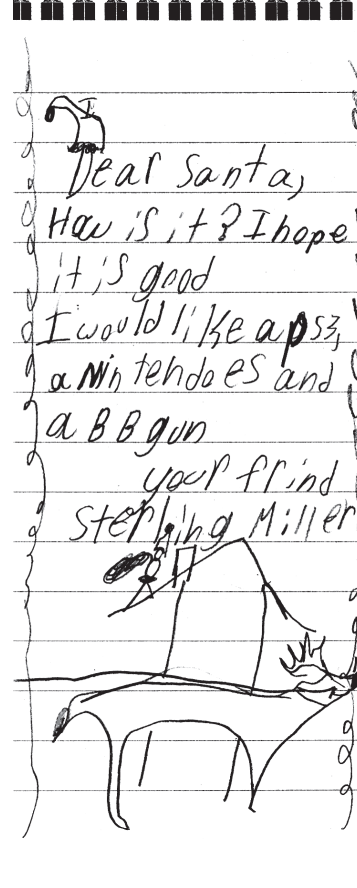 I
Dear Santa,
How is it? I hope
it is good
I would like a ps3,
a Nintendoes and
a BB gun
your frind
Sterling Miller